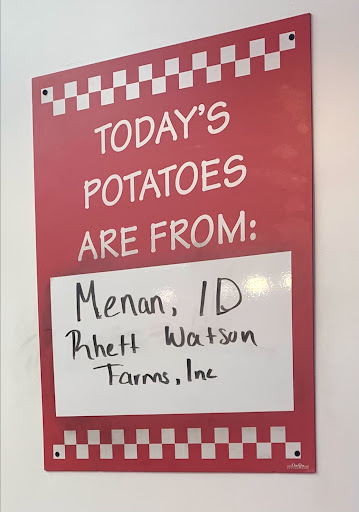 TODAY'S
POTATOES
ARE FROM:
Menan, ID
Rhett Watson
Farms, Inc